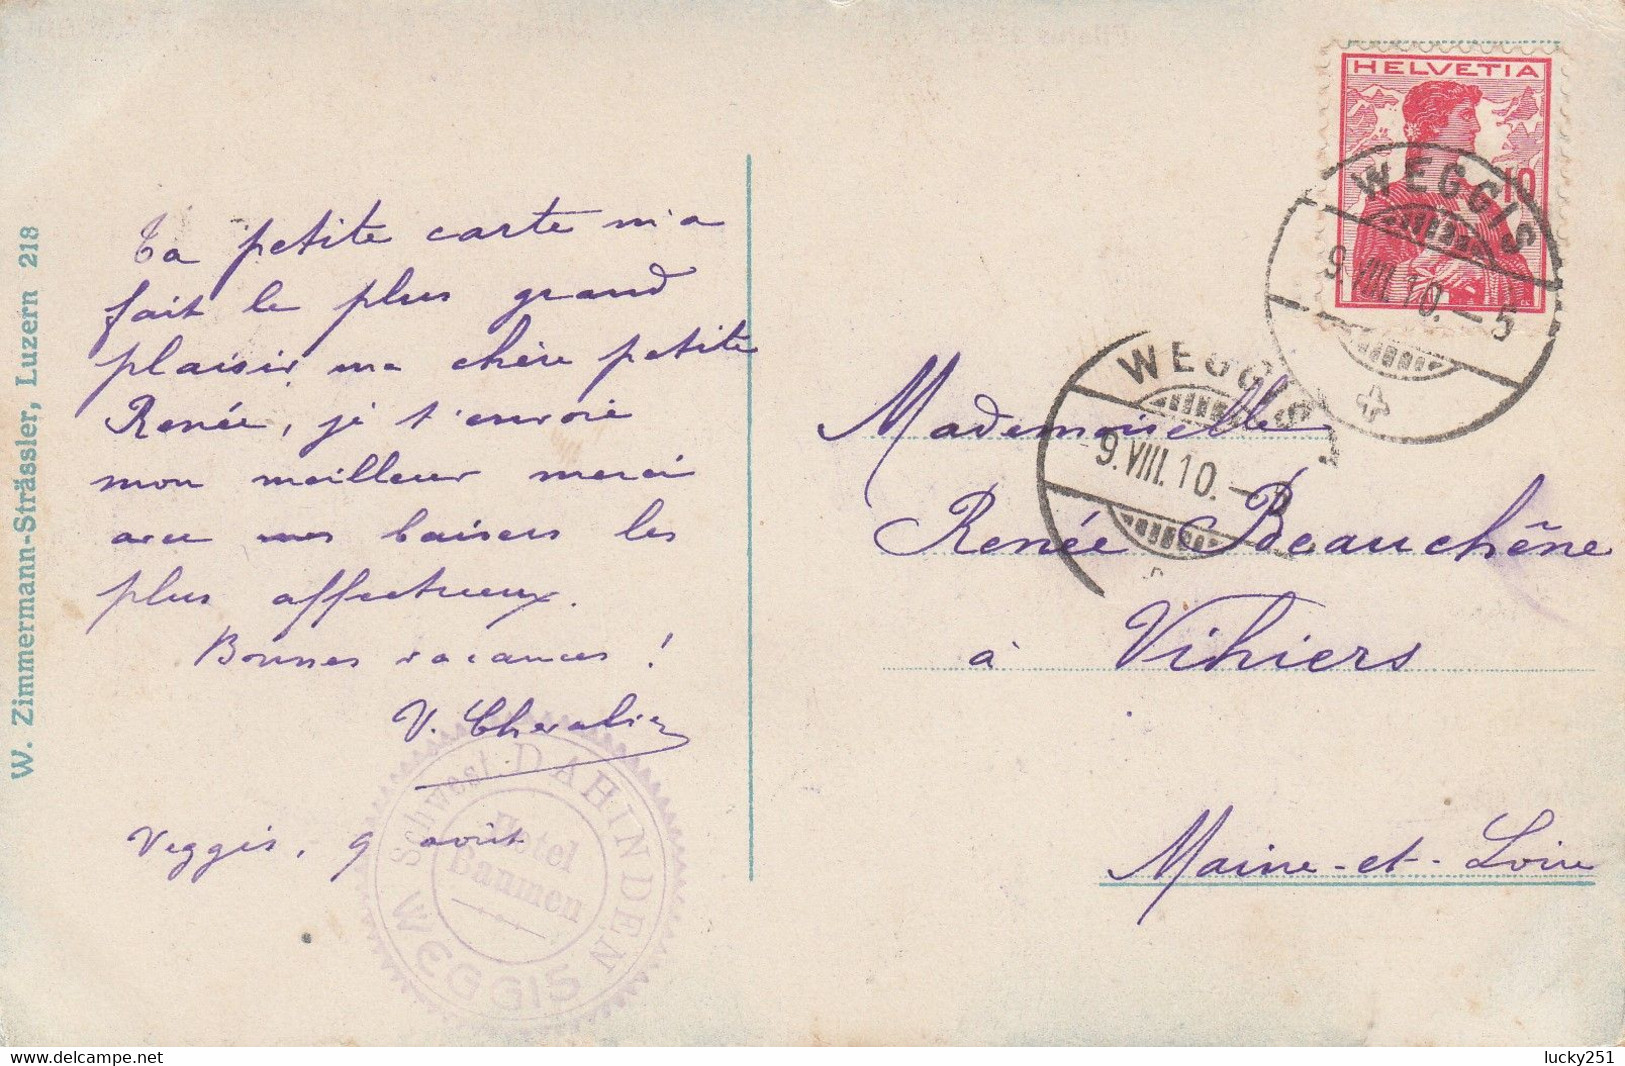 W. Zimmermann-Strässler, Luzern 218
Ta petite carte m'a
fait le plus grand
plaisir, ma chère petite
Renée, je t'envoie
mon meilleur merci
avec mes baisers les
plus affectueux.
Bonnes vacances !
V. Chevalier
Veggis, 9 août
Schwest. DAHINDEN
Hotel
Baumen
WEGGIS
HELVETIA
10
WEGGIS
9.VIII.10.–5
WEGGIS
9.VIII.10.–
Mademoiselle
Renée Beauchêne
à Vihiers
Maine-et-Loire
www.delcampe.net
lucky251